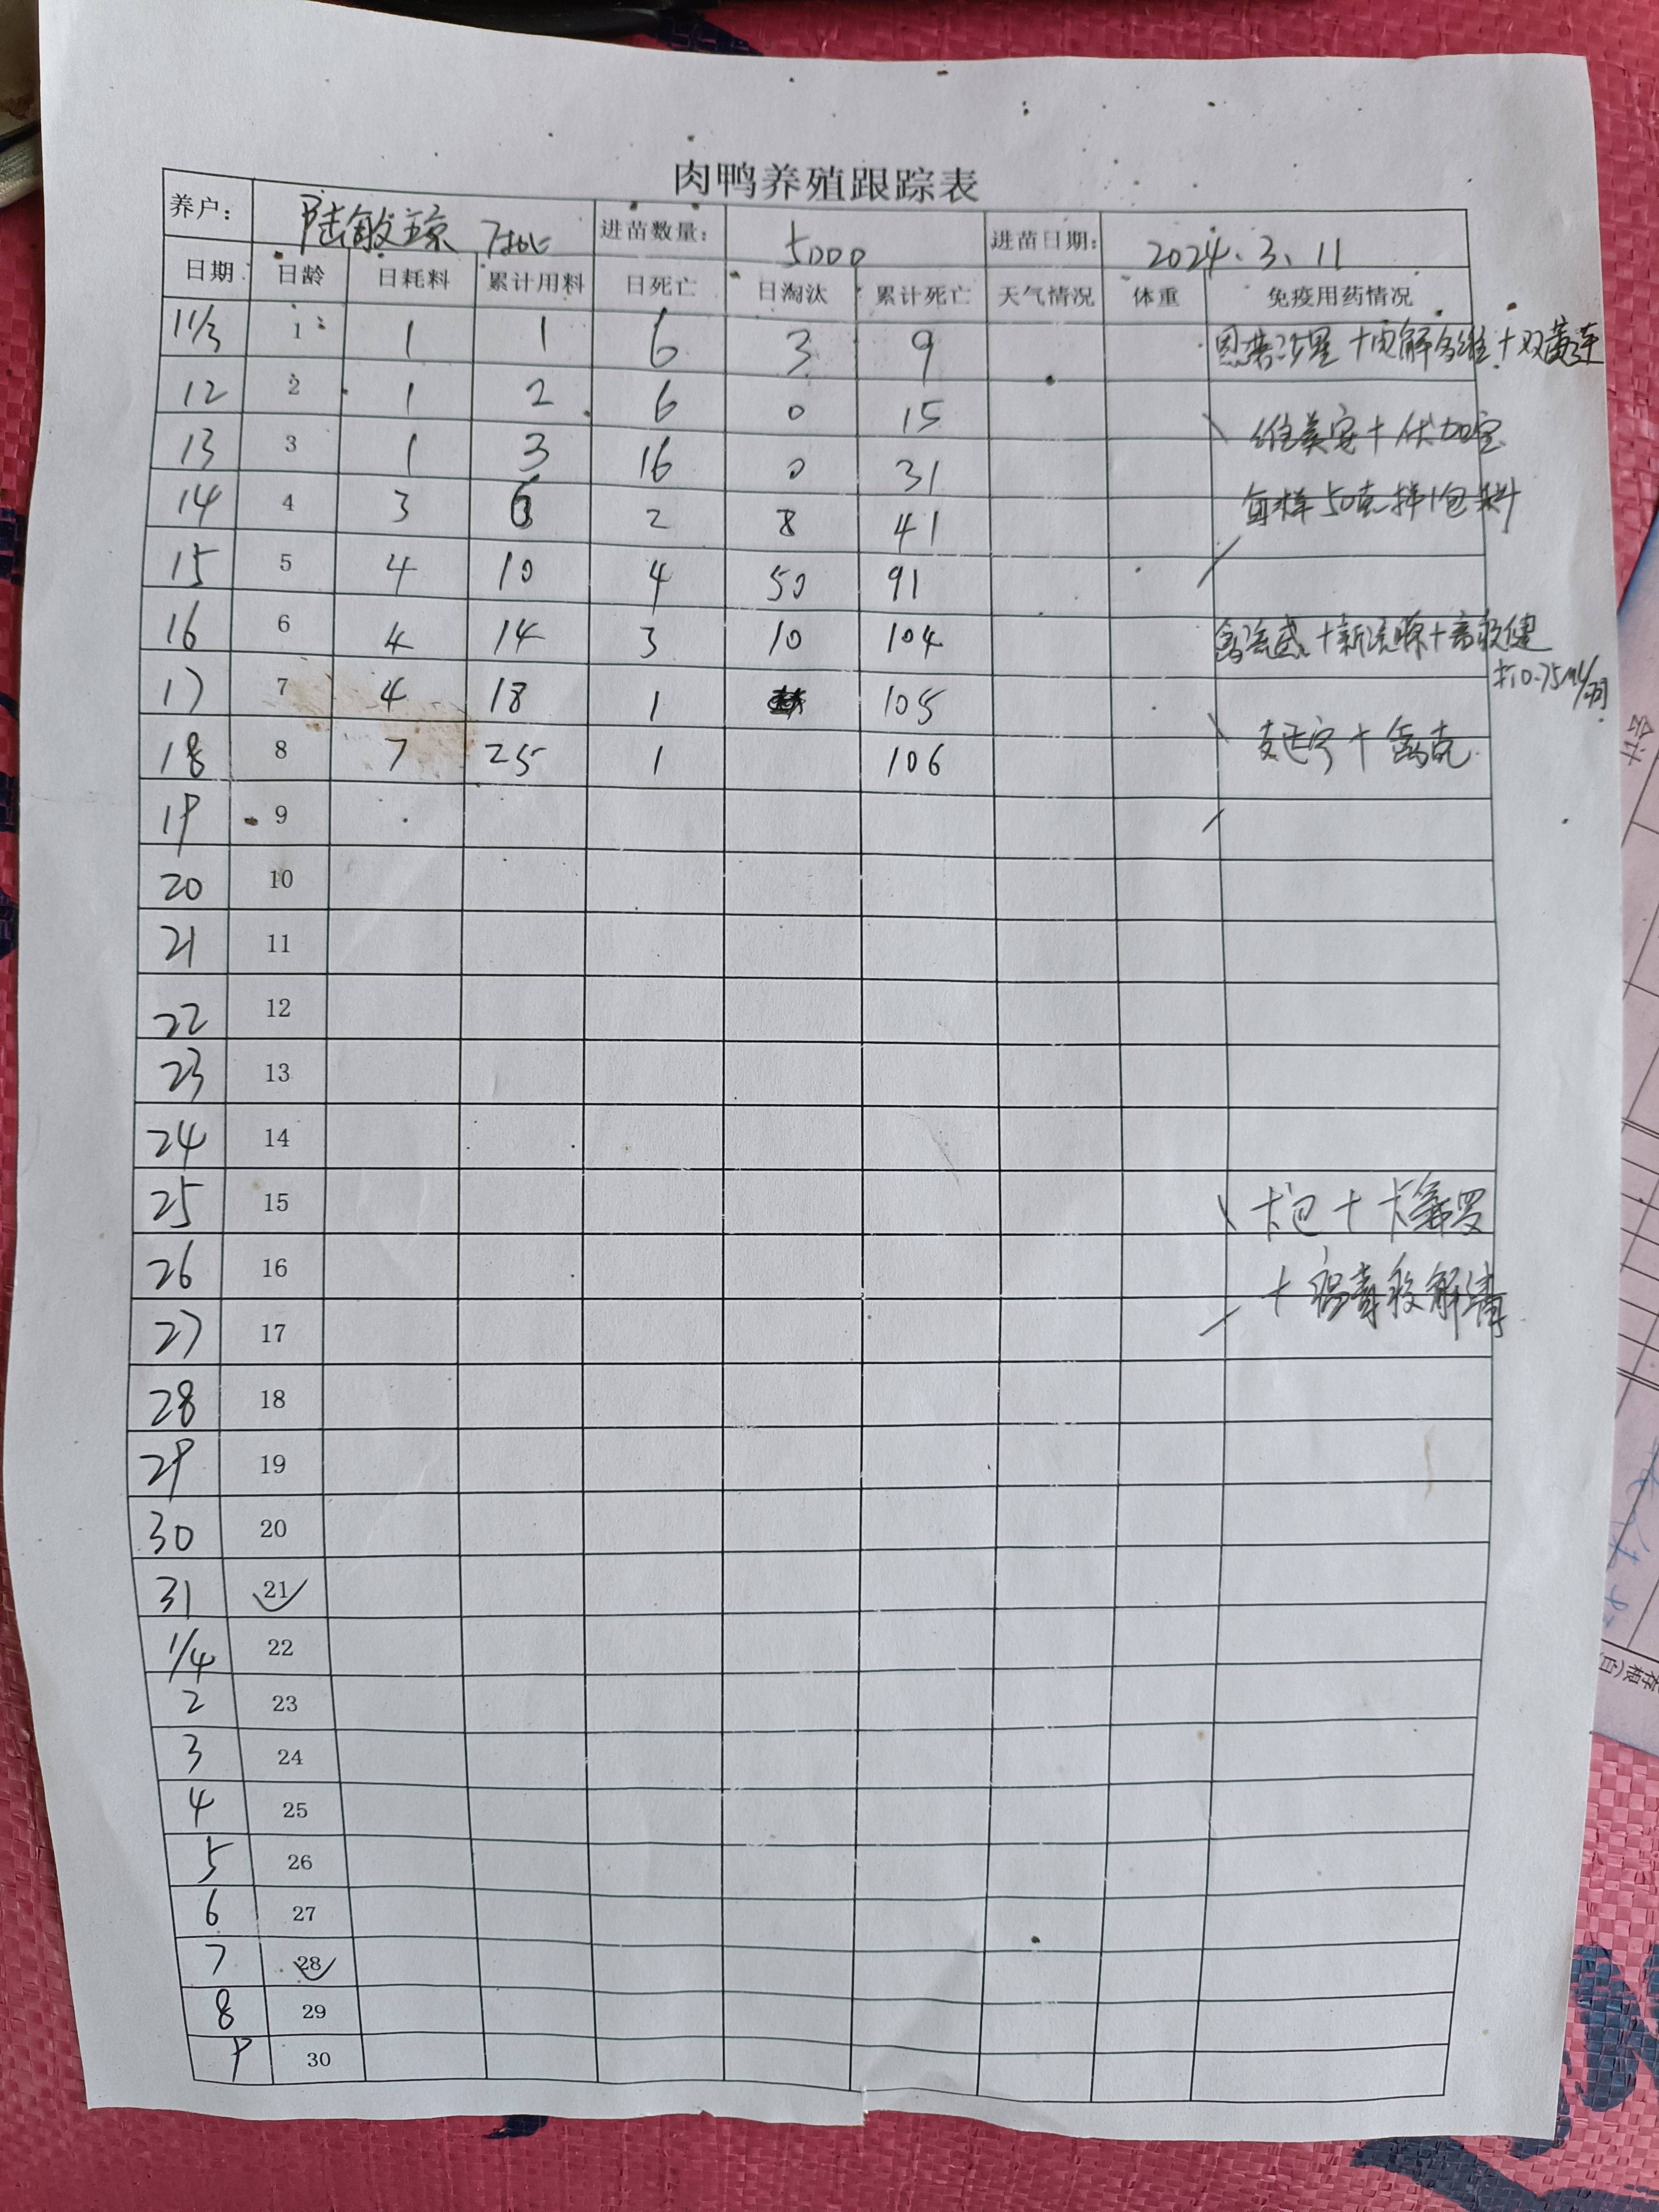 肉鸭养殖跟踪表
养户： 陆敏琼 进苗数量： 5000 进苗日期： 2024.3.11
日期 日龄 日耗料 累计用料 日死亡 日淘汰 累计死亡 天气情况 体重 免疫用药情况
11/3 1 1 1 6 3 9 恩诺沙星+电解多维+双黄连
12 2 1 2 6 0 15
13 3 1 3 16 0 31
14 4 3 6 2 8 41 每样50克拌1包料
15 5 4 10 4 50 91
16 6 4 14 3 10 104
17 7 4 18 1 105
18 8 7 25 1 106
19 9
20 10
21 11
22 12
23 13
24 14
25 15
26 16
27 17
28 18
29 19
30 20
31 21
1/4 22
2 23
3 24
4 25
5 26
6 27
7 28
8 29
9 30